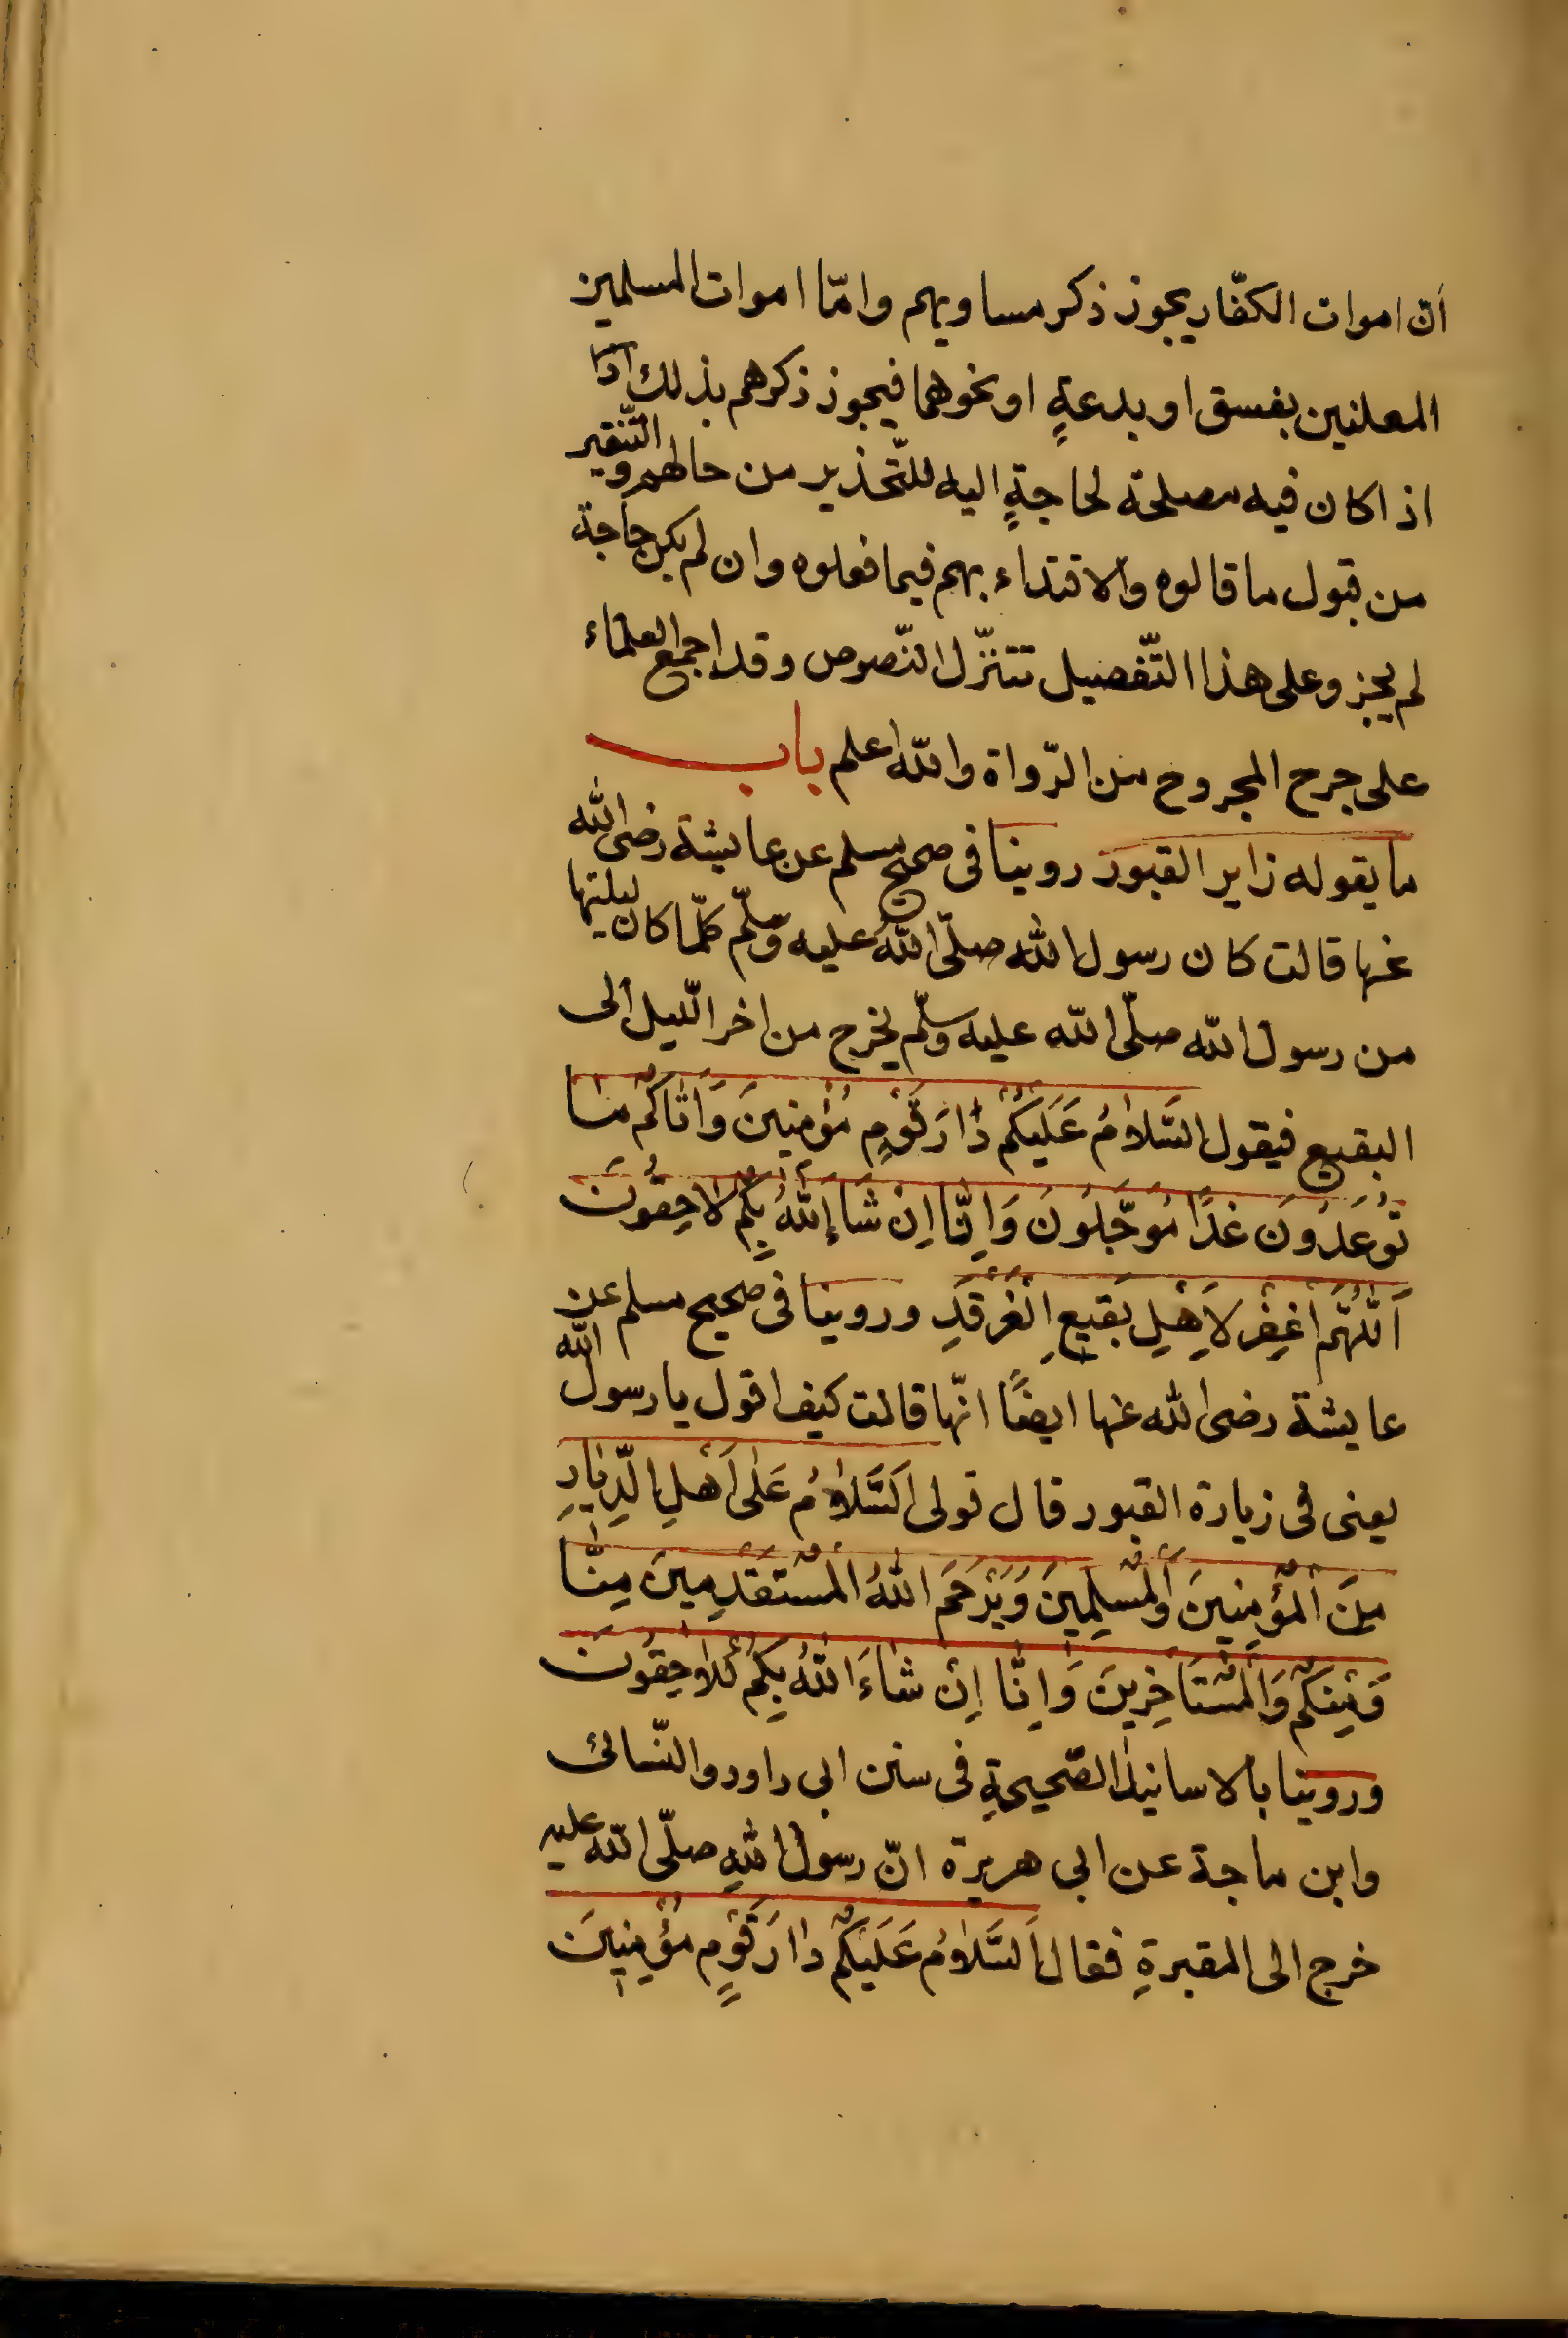 ان اموات الكفّار يجوز ذكر مساويهم وامّا اموات المسلمين
المعلنين بفسق او بدعةٍ او نحوهما فيجوز ذكرهم بذلك اذا
اذا كان فيه مصلحة لحاجةٍ اليه للتّحذير من حالهم والتّنفير
من قبول ما قالوه والاقتداء بهم فيما فعلوه وان لم يكن حاجة
لم يجز وعلى هذا التّفصيل تتنزّل النّصوص وقد اجمع العلماء
على جرح المجروح من الرّواة والله اعلم باب
ما يقوله زاير القبور روينا فى صحيح مسلم عن عايشة رضى الله
عنها قالت كان رسول الله صلّى الله عليه وسلّم كلّما كان ليلتها
من رسول الله صلّى الله عليه وسلّم يخرج من اخر اللّيل الى
البقيع فيقول السَّلامُ عَلَيكُمْ دَارَ قَوْمٍ مُؤمِنينَ وَاَتَاكُمْ مَا
تُوعَدُونَ غدًا مُؤجَّلُونَ وَاِنَّا اِنْ شَاءَ اللهُ بِكُمْ لاحِقُونَ
اَللّٰهُمَّ اغْفِرْ لاَهْلِ بَقيعِ الْغَرْقَدِ وروينا فى صحيح مسلم عن
عايشة رضى الله عنها ايضًا انّها قالت كيف اقول يا رسول الله
يعنى فى زيارة القبور قال قولى اَلسَّلامُ عَلَى اَهْلِ الدِّيَارِ
مِنَ الْمُؤْمِنِينَ وَالْمُسْلِمِينَ وَيَرْحَمُ اللهُ الْمُسْتَقْدِمِينَ مِنَّا
وَمِنكُمْ وَالْمُسْتَاخِرِينَ وَاِنَّا اِنْ شَاءَ اللهُ بِكُمْ لَلاحِقُونَ
وروينا بالاسانيد الصّحيحةِ فى سنن ابى داود والنّسائى
وابن ماجة عن ابى هريرة انّ رسول اللهِ صلّى الله عليه
خرج الى المقبرةِ فقال اَلسَّلامُ عَلَيْكُمْ دَارَ قَوْمٍ مُؤْمِنِينَ